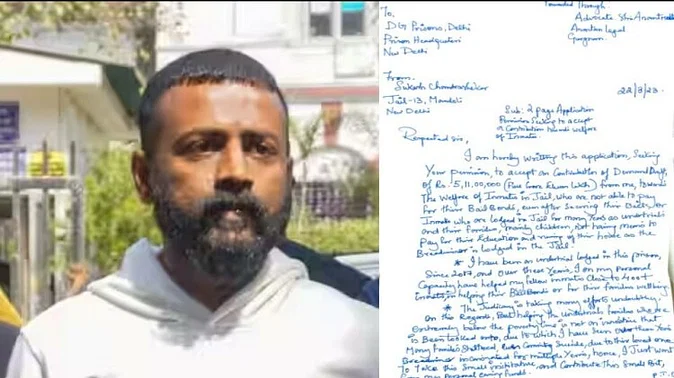 Forwarded Through:
To,
Advocate Shri Anant
DG Prisons, Delhi
Anantam Legal
Prison Headquaters
Gurgaon.
New Delhi
From
Sukesh Chandrashekar
22/3/23.
Jail-13, Mandoli
New Delhi
Sub: 2 page Application
Permission Seeking to accept
a Contribution towards welfare
of Inmates.
Respected Sir,
I am humbly writting this application, Seeking
Your permission, to accept an Contribution of Demand Draft,
of Rs. 5,11,00,000 (Five Crore Eleven Lakh) from me, towards
The Welfare of Inmates in Jail, who are not able to pay
for their Bail Bonds, even after securing their Bails, for
Inmate who are lodged in Jail for many Years as undertrials
and their Families, mainly children, Not having means to
Pay for their Education and running of their house as the
Breadwinner is Lodged in the Jail.
* I have been an undertrial lodged in this prison,
Since 2017, and over these Years, I on my personal
Capacity have helped my fellow inmates Close to 400+
Inmates in helping their Bail Bonds or for their families wellbeing
* The Judiciary is taking many efforts undoubtedly
On this Regards, But helping the Undertrials families who are
extremely below the poverty line is not an initiative that
is Been looked onto, due to which I have Seen over these Years
Many Families Shattered, Even Commiting Suicide, due to their loved one
Breadwinner incarcerated for multiple Years, hence, I Just want
To Take this Small initiative, and Contribute this Small Bit,
from my Personal Earning Funds.
P.T.O